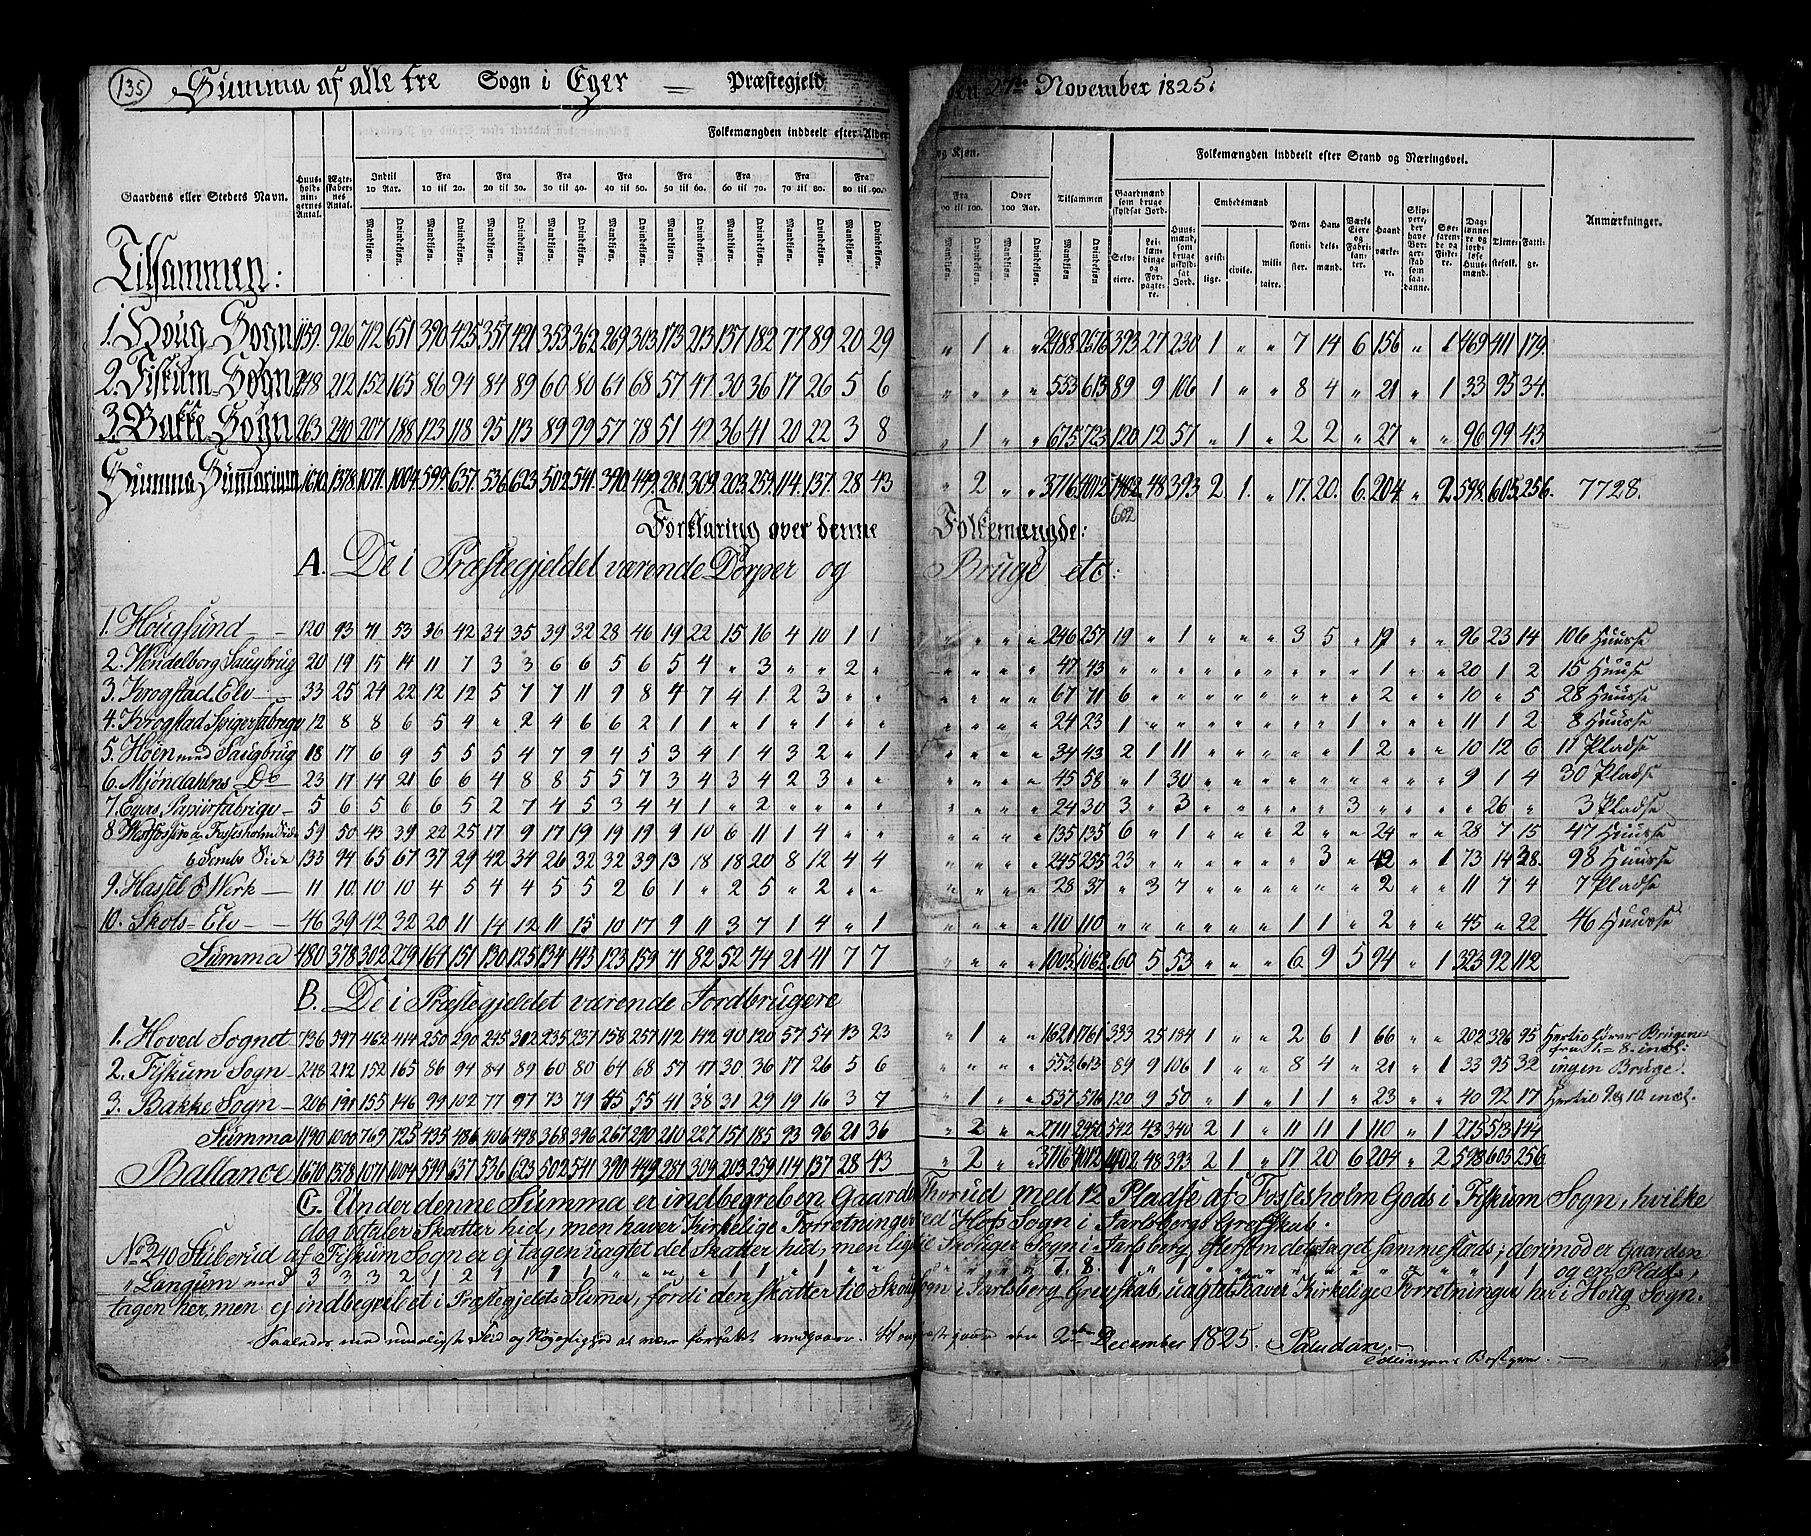 135
Summa af alle tre Sogn i Eger = Præstegjeld den 27de November 1825.
Folkemængden inddeelt efter Alder og Kjøn.
Folkemængden inddeelt efter Stand og Næringsvei.
Gaardens eller Stedets Navn.
Huusholdningernes Antal.
Ægteskabernes Antal.
Indtil 10 Aar.
Fra 10 til 20.
Fra 20 til 30.
Fra 30 til 40.
Fra 40 til 50.
Fra 50 til 60.
Fra 60 til 70.
Fra 70 til 80.
Fra 80 til 90.
Fra 90 til 100.
Over 100 Aar.
Tilsammen
Gaardmænd som bruge skyldsat Jord.
Huusmænd, som bruge uskyldsat Jord.
Embedsmænd
Pensionister.
Handelsmænd.
Værks-Eiere og Fabrikanter.
Haandværkere.
Skippere, der have Borgerskab som saadanne.
Søefarende og Fiskere.
Dagslønnere og jordløse Huusmænd.
Tjenestefolk.
Fattige.
Anmærkninger.
Mandkjøn. Qvindekjøn.
Selveiere. Leilændinge og Forpagtere.
geistlige. civile. militaire.
Tilsammen:
1. Houg Sogn 1159. 926 712 651 390 425 357 421 353 362 269 303 173 213 137 182 77 89 20 29 " 1 " " 2488 2676 393 27 230 1 " " 7 14 6 156 " 1 469 411 179.
2. Fiskum Sogn 248 212 152 165 86 94 84 89 60 80 64 68 57 47 30 36 17 26 5 6 " " " " 553 613 89 9 106 1 " " 8 4 " 21 " 1 33 95 34.
3. Bakke Sogn 263 240 207 188 123 118 95 113 89 99 57 78 51 42 36 41 20 22 3 8 " 1 " " 675 723 120 12 57 " 1 " 2 2 " 27 " " 96 99 43
Summa Summarum 1670 1378 1071. 1004. 599. 637. 536 623 502 541. 390 449. 281 309. 203. 259. 114. 137. 28 43 " 2 " " 3716 4012 48 393 2 1. " 17. 20. 6. 204. " 2. 598. 605. 256. 7728.
602
Forklaring over denne Folkemængde:
A. De i Præstegjeldet værende Dorper og Bruge etc:
1. Hougsund 120 93 71 53 36 42 34 35 39 32 28 46 19 22 15 16 4 10 1 1 " " " 246 257 19 " 1 " " " 3 5 " 19 " " 96 23 14 106 Huusse
2. Wendelborg Saugbrug 20 19 15 14 11 7 3 3 6 6 5 6 5 4 " 3 " " 2 " " " " " 47 43 " " " " " " " " " 1 " " 20 1 2 15 Huuse
3. Krogstad Elv 33 25 24 22 12 12 5 7 7 11 9 8 4 7 4 1 2 3 " " " " " " 67 71 6 " " " " " " " " 2 " " 10 " 5 28 Huusse
4. Krogstad Spigerfabrege 12 8 8 6 5 4 " 2 4 6 6 2 1 1 " 1 " 1 " " " " " " 24 23 1 " " " " " " " 1 " " " 11 1 2 8 Huusse
5. Hoen med Saugbrug 18 17 6 9 5 5 5 4 7 9 4 5 3 4 1 4 3 2 " 1 " " " 34 43 2 1 11 " " " " " 1 2 " " 10 12 6 11 Pladse
6. Mjøndahlens Do 23 17 14 21 6 6 4 8 8 5 5 7 3 4 3 4 2 3 " " " " " " 45 58 " 1 30 " " " " " " " " " 9 1 4 30 Pladse
7. Egers Papiirfabrige 5 6 5 6 6 5 2 7 4 5 3 4 4 1 " 2 " " " " " " " " 24 30 3 " 3 " " " " " 3 " " " " 26 " 3 Pladse
59 50 43 39 22 25 17 9 17 19 19 19 9 10 6 11 1 4 " " " " " " 135 135 6 " 1 " " " 2 " " 24 " " 28 7 15 47 Huusse
Sembs Side 133 94 65 67 37 29 42 34 26 32 32 39 13 18 18 20 8 12 4 4 " " " " 245 255 23 " " " " " " 3 " 42 " 1 73 14 28. 98 Huusse
9. Hassel Werk 11 10 10 10 4 5 4 4 5 5 2 6 1 " 2 5 " 2 " " " " " " 28 37 " 3 7 " " " " " " 2 " " 11 7 4 7 Pladse
10. Skots-Elv 46 39 42 32 20 11 14 12 11 15 10 17 9 11 3 7 1 4 " 1 " " " " 110 110 " " " " " " 1 1 " 2 " " 45 " 22 46 Huusse
Summa 480 378 302 279 164 151 130 125 134 145 123 159 71 82 52 74 21 41 7 7 " " " " 1005 1062. 60 5 53 " " " 6 9 5 94 " 1 323 92 112
B. De i Præstegjeldet værende Jordbrugere
1. Hoved Sognet 736 597 462 414 250 290 245 312 235 237 158 257 112 142 90 120 57 54 13 23 " 1 " " 1621 1761 333 25 184 1 " " 2 6 1 66 " " 202 326 95 Hertil hører Brugene
fra 1 = 8. incl:
2. Fiskum Sogn 248 212 152 165 86 94 84 89 60 80 64 68 57 47 30 36 17 26 5 6 " " " " 553 613 89 9 106 1 " " 8 4 " 21 " 1 33 95 32 ingen Bruge
3. Bakke Sogn 206 191 155 146 99 102 77 97 73 79 45 55 41 38 31 29 19 16 3 7 " 1 " " 537 576 120 9 50 " 1 " 1 1 " 23 " " 40 92 17 Hertil 9 & 10 incl.
Summa 1190 1000 769 725 435 486 406 498 368 396 267 290 210 227 151 185 93 96 21 36 " 2 " " 2711 2950 542 43 340 2 1 " 11 11 1 110 " 1 275 513 144
Ballance 1670 1378 1071 1004 599 637 536 623 502 541 390 449 281 309 203 259 114 137 28 43 " 2 " " 3716 4012 48 393 2 1 " 17 20 6 204 " 2 598 605 256
C. Under denne Summa er indbegreben Gaarden Thorud med 12 Pladse af Fossesholm Gods i Fiskum Sogn, hvilke
dog betaler Skatter hid, men haver Kirkelige Forretninger ved Hofs Sogn i Jarlsbergs Grefskab.
No 240 Stiberud af Fiskum Sogn er ej tagen uagtet det Skatter hid, men ligt til Skouger Sogn i Jarlsberg, eftersom det taget sammesteds; derimod er Gaarden
" Langum med 3 3 3 2 1 2 1 1 1 1 " " " " 1 1 " 1 " " " " " " 7. 8. 1 " 1 " " " " " " " " " " 1 1 og en Plads,
tagen her, men ej indbegrebet i Præstegjeldets Suma, fordi den skatter til Skoug Sogn i Jarlsberg Grevskab, uagtet den haver Kirkelige Forretninger her i Houg Sogn.
Saaledes med mueligste Flid og Nøyagtighed at være forfattet Hougs Præstegaard den 2den December 1825. Paludan,